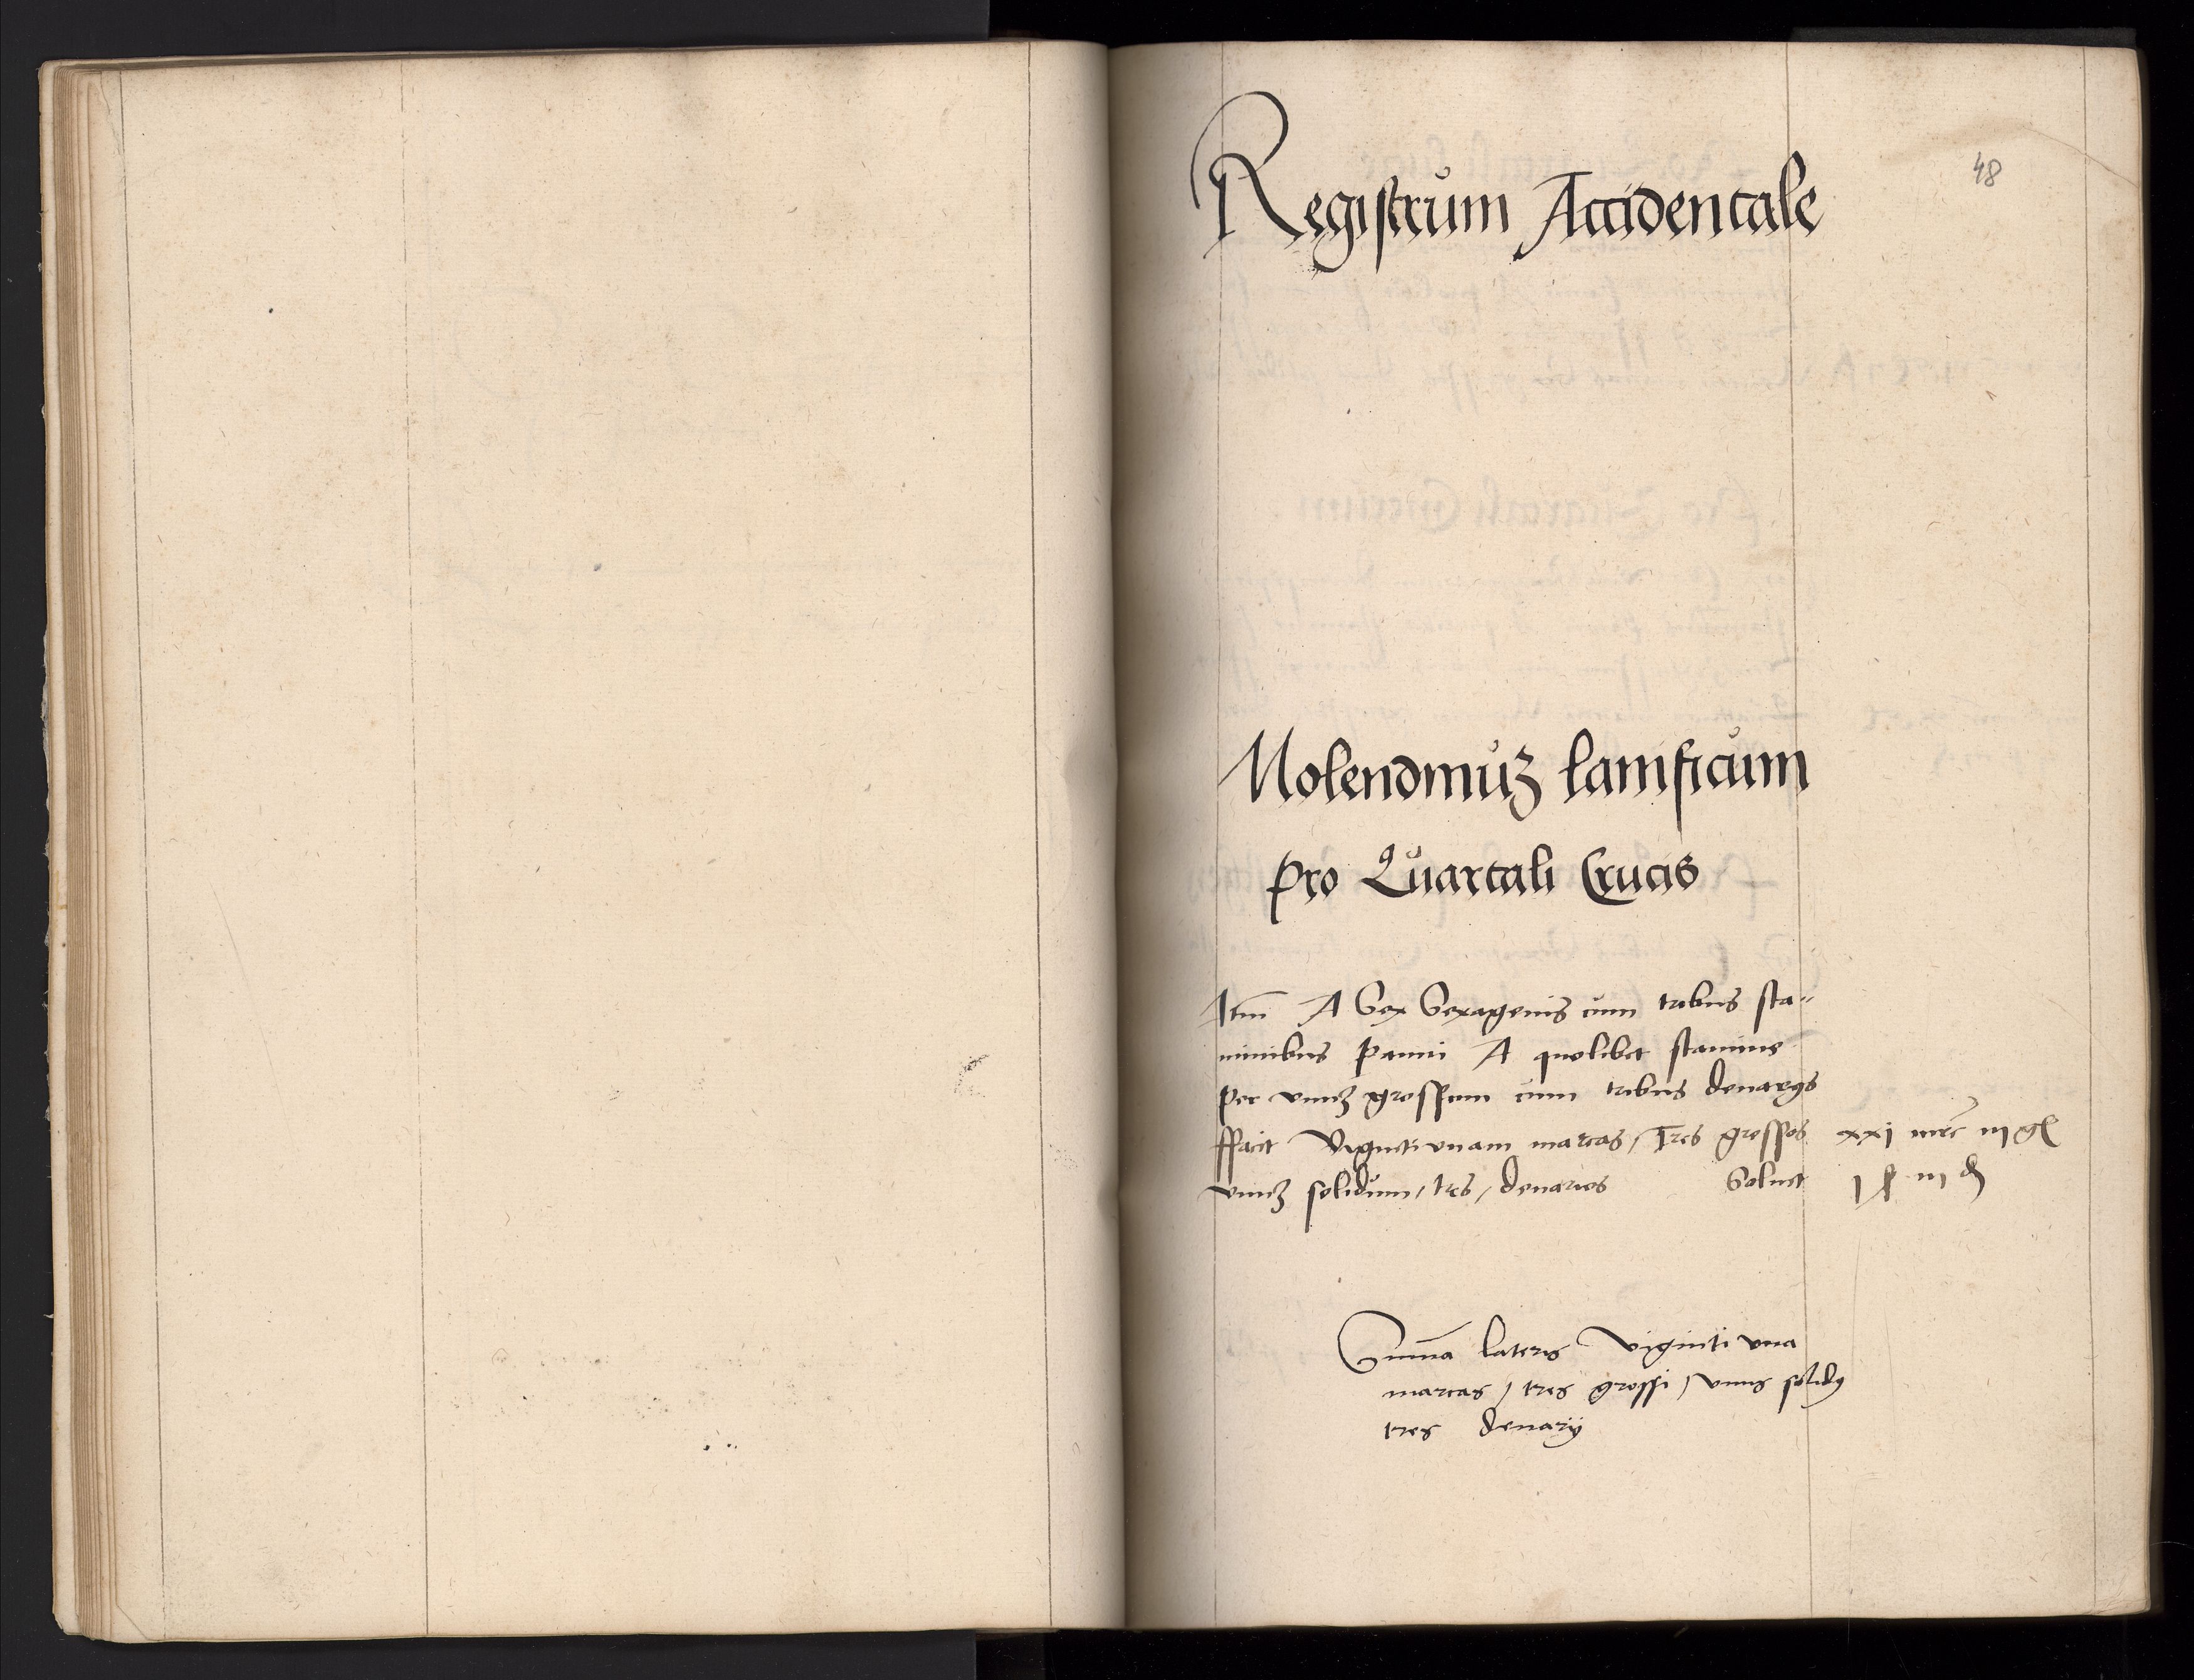 48
Registrum Accidentale
Molendinuʒ lanificum
pro Quartali Crucis
Itm̄ A Sex Sexagenis cum tribus sta„
minibus panni A quolibet stamine
per vnuʒ grossum cum tribus denarijs
ffacit Viginti vnam marcas / Tres grossos xxj mrc iij gr
vnuʒ solidum / tres / denarios Soluit j ß iij d
Sum̄a lateris viginti vna
marcas / tres grossi / vnus solidꝰ
tres denarij